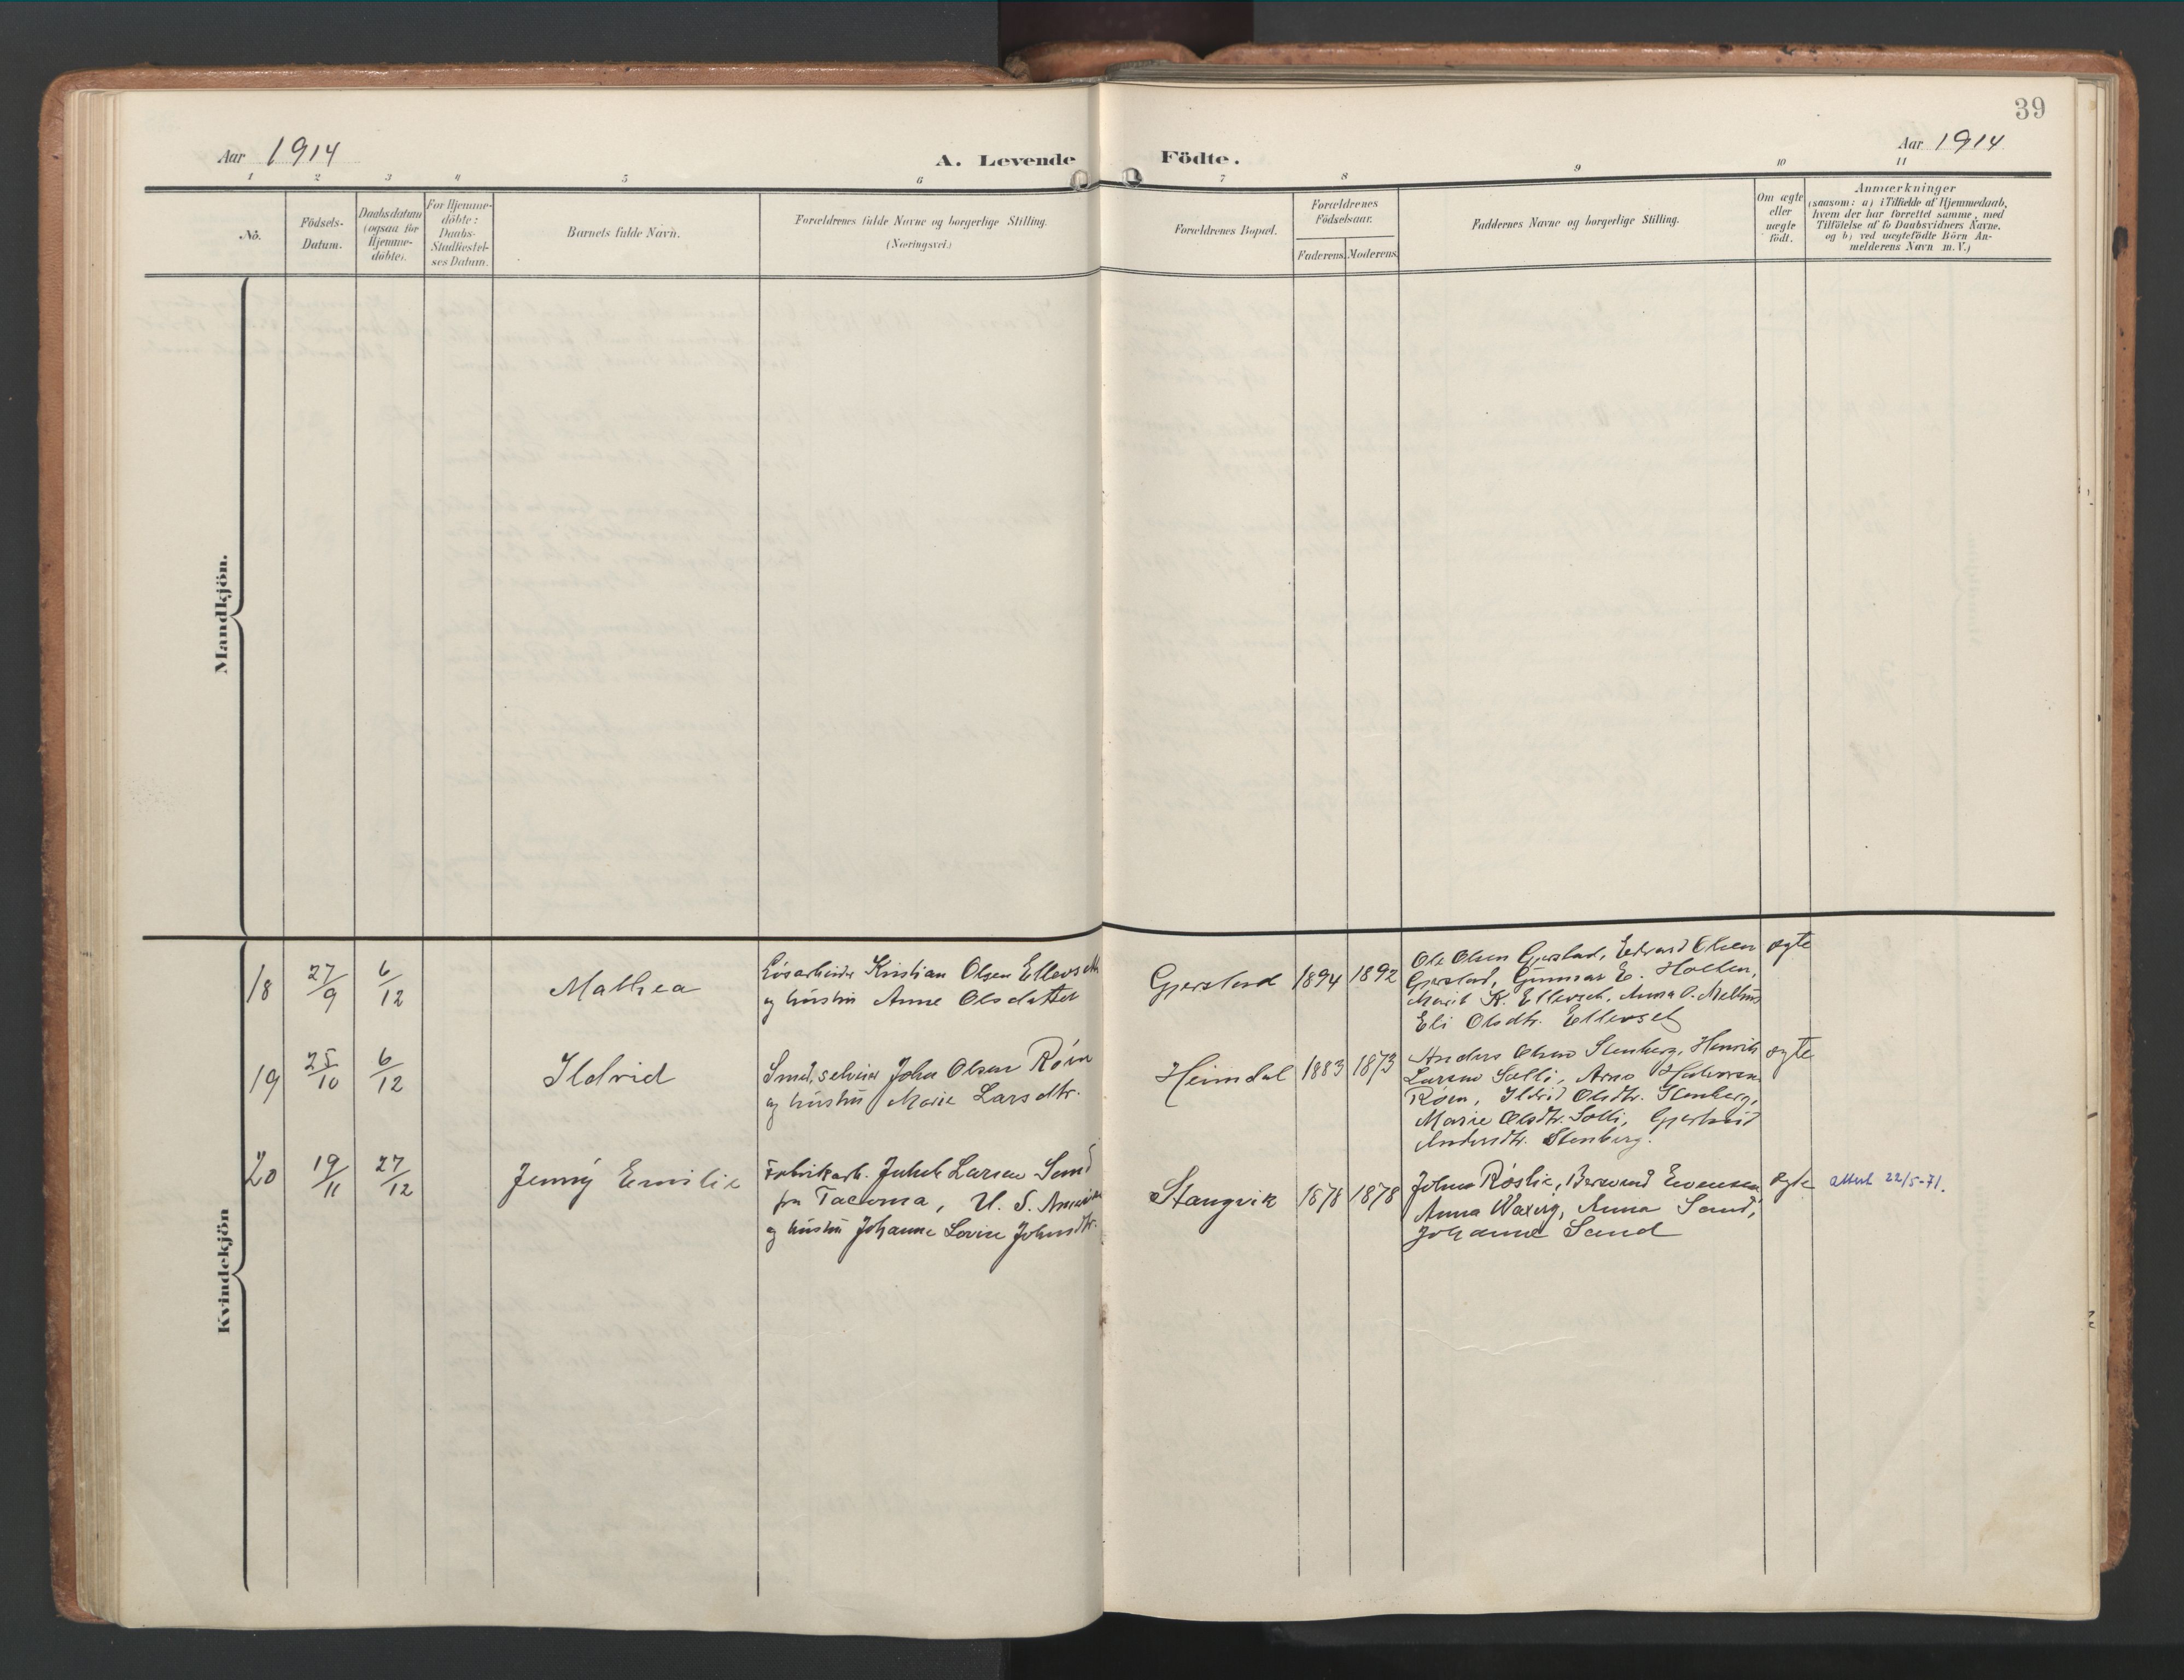 39
Aar 1914
A. Levende Födte.
Aar 1914
1 2 3 4 5 6 7 8 9 10 11
No.
Födsels-
Datum.
Daabsdatum
(ogsaa for
Hjemme-
döbte).
For Hjemme-
döbte:
Daabs-
Stadfæstel-
ses Datum.
Barnets fulde Navn.
Forældrenes fulde Navne og borgerlige Stilling.
(Næringsvei.)
Forældrenes Bopæl.
Forældrenes
Födselsaar.
Faderens. Moderens.
Faddernes Navne og borgerlige Stilling.
Om ægte
eller
uægte
födt.
Anmærkninger
(saasom: a) i Tilfælde af Hjemmedaab,
hvem der har forrettet samme, med
Tilföielse af to Daabsvidners Navne.
og b) ved uægtefödte Börn An-
melderens Navn m. V.)
Mandkjön.
Kvindekjön
18 27/9 6/12 Mathea
Løsarbeider Kristian Olsen Ellevseth
og hustru Anne Olsdatter
Gjerstad 1894 1892
Ole Olsen Gjerstad, Edvard Olsen
Gjerstad, Gunnar E. Holten,
Marit K. Ellevseth, Anna O. Melhus
Eli Olsdtr. Ellevseth
ægte
19 25/10 6/12 Ildrid
Smed, selveier John Olsen Röen
og hustru Marie Larsdtr.
Heimdal 1883 1873
Anders Olsen Stenberg, Henrik
Larsen Solli, Arne Halvorsen
Röen, Ildrid Olsdtr. Stenberg,
Marie Olsdtr. Solli, Gjertrud
Andersdtr. Stenberg.
ægte
20 19/11 27/12 Jenny Emilie
Fabrikarb. Jakob Larsen Sand
fra Tacoma, U. S. Amerika
og hustru Johanne Lovise Johnsdtr.
Stangvik 1878 1878
Johan Röslie, Evensen
Anna Anna Sand,
Johanne Sand
ægte
attest 22/5-71.